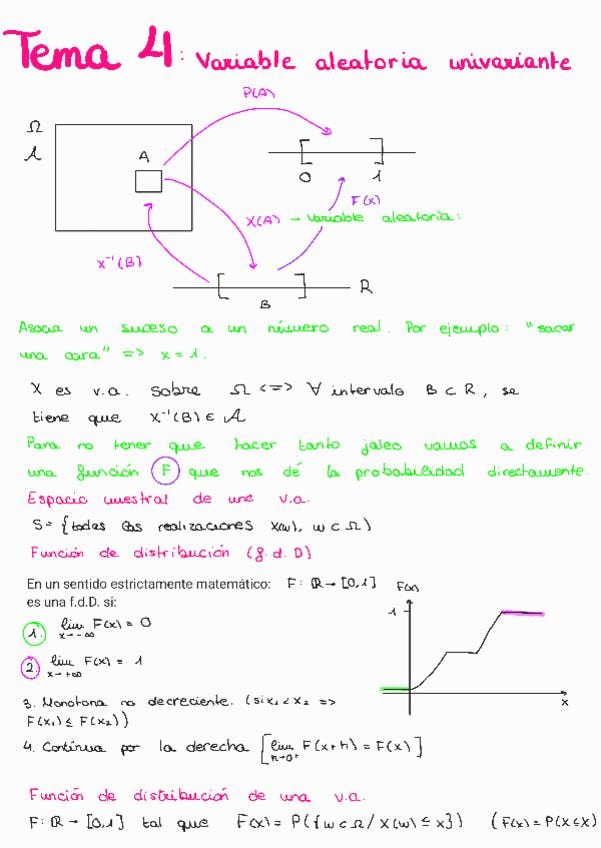 Tema 4: Variable aleatoria univariante
P(A)
Ω
A
A
0 1
F(x)
X(A) → Variable aleatoria:
X⁻¹(B)
R
B
Asocia un suceso a un número real. Por ejemplo: "sacar
una cara" => x = 1.
X es v.a. sobre Ω <=> ∀ intervalo B ⊂ R, se
tiene que X⁻¹(B) ∈ A
Para no tener que hacer tanto jaleo vamos a definir
una función F que nos dé la probabilidad directamente
Espacio muestral de una v.a.
S = {todas las realizaciones X(w), w ⊂ Ω)
Función de distribución (f.d.D)
En un sentido estrictamente matemático: F: R → [0,1]
es una f.d.D. si:
F(x)
1
x
1. lim F(x) = 0
x→-∞
2. lim F(x) = 1
x→+∞
3. Monótona no decreciente. (si x₁ < x₂ =>
F(x₁) ≤ F(x₂))
4. Contínua por la derecha [lim F(x+h) = F(x)]
h→0⁺
Función de distribución de una v.a.
F: R → [0,1] tal que F(x) = P({w ⊂ Ω / X(w) ≤ x}) (F(x) = P(X ≤ X)